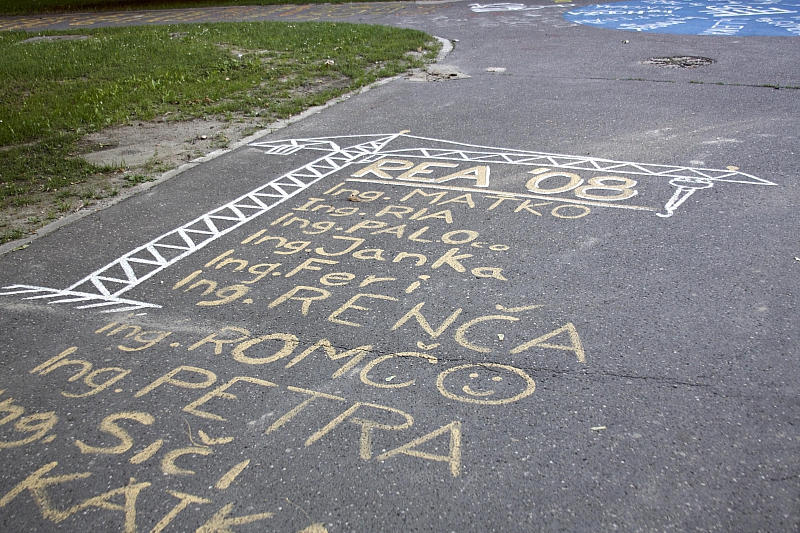 REA '08
Ing. MATKO
Ing. RIA
Ing. PALO
Ing. Janka
Ing. Feri
Ing. RENČA
Ing. ROMČO
Ing. PETRA
Ing. SiČi